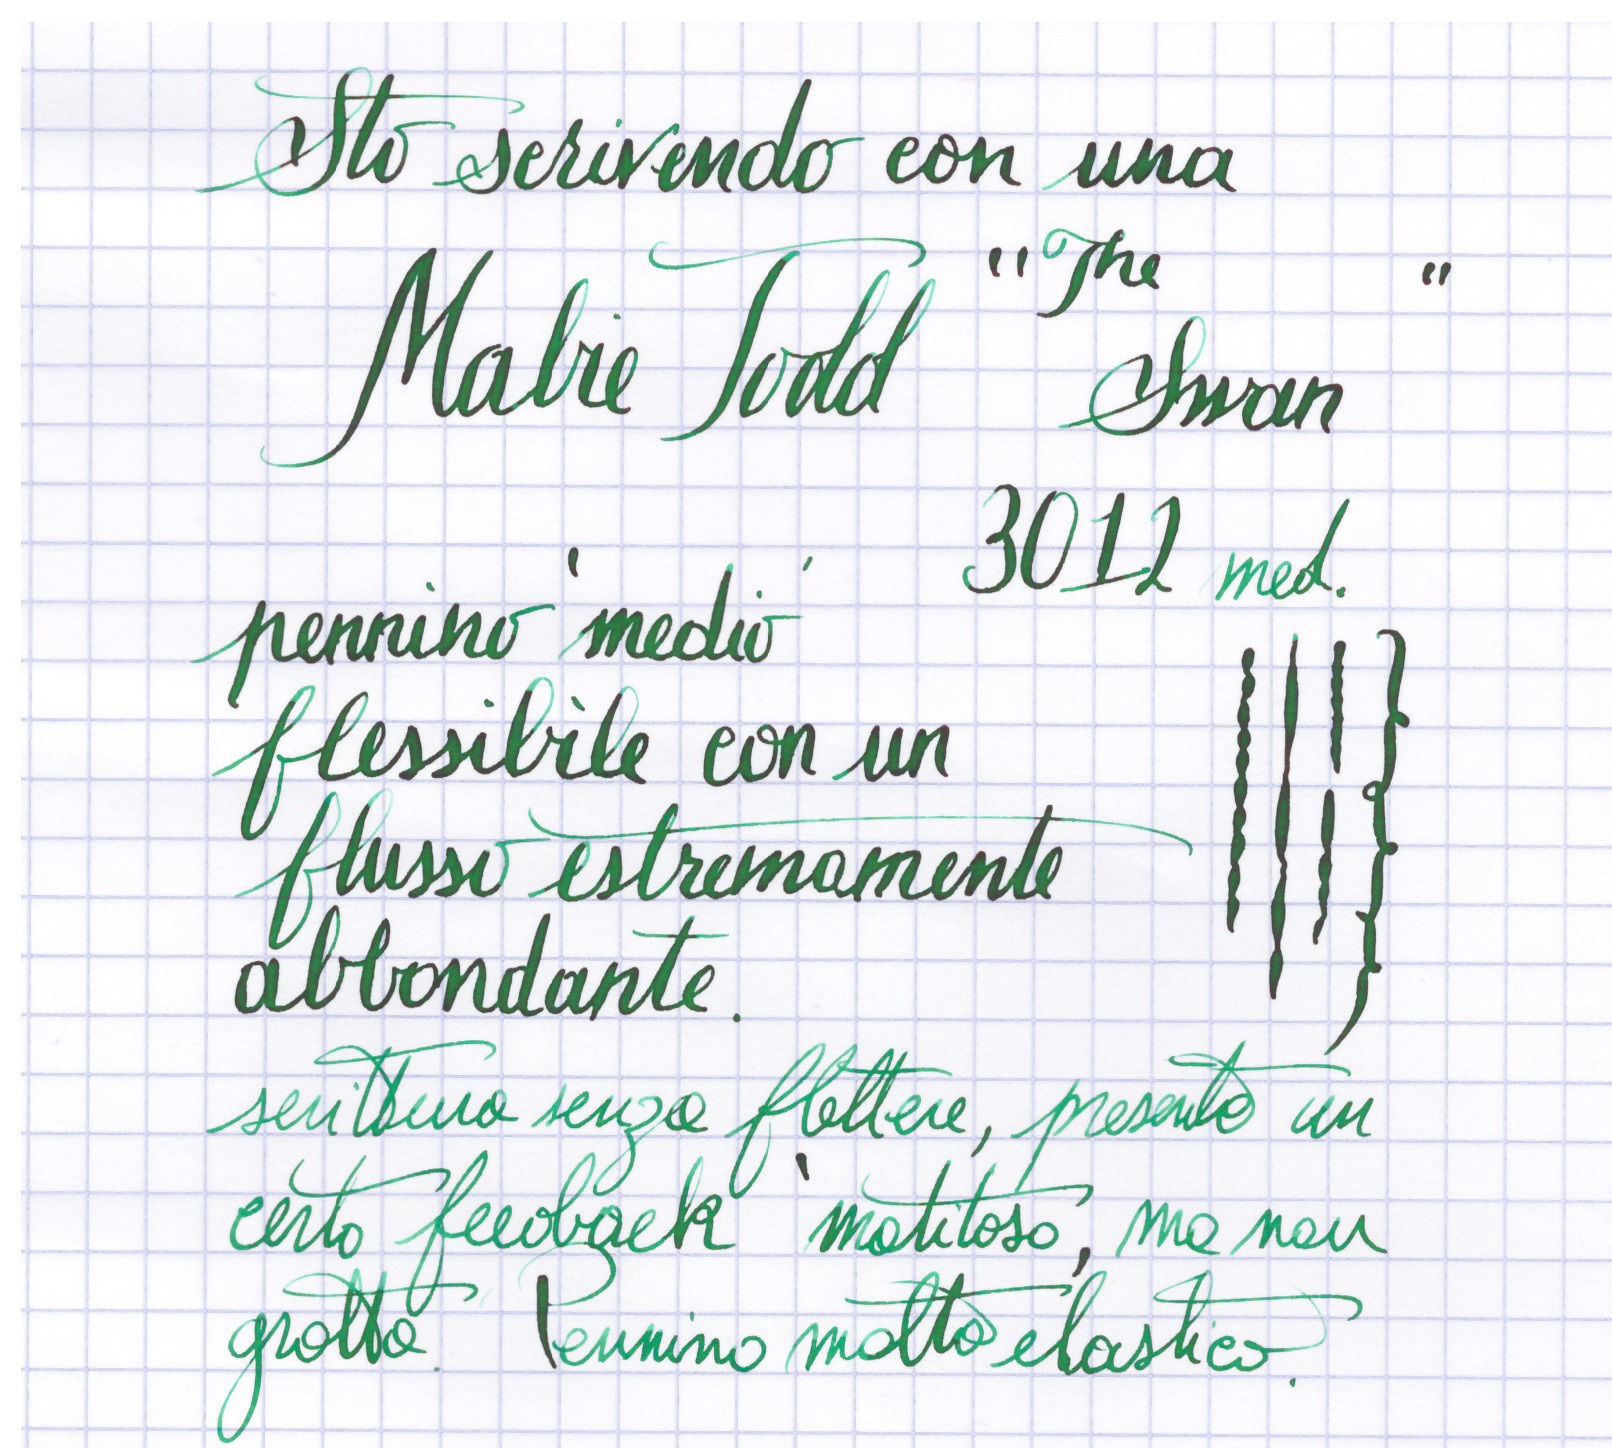 Sto scrivendo con una
Mabie Todd "The Swan"
3012 med.
pennino 'medio'
flessibile con un
flusso estremamente
abbondante.
scrittura senza flettere, presenta un
certo feedback 'matitoso', ma non
gratta. Pennino molto elastico.